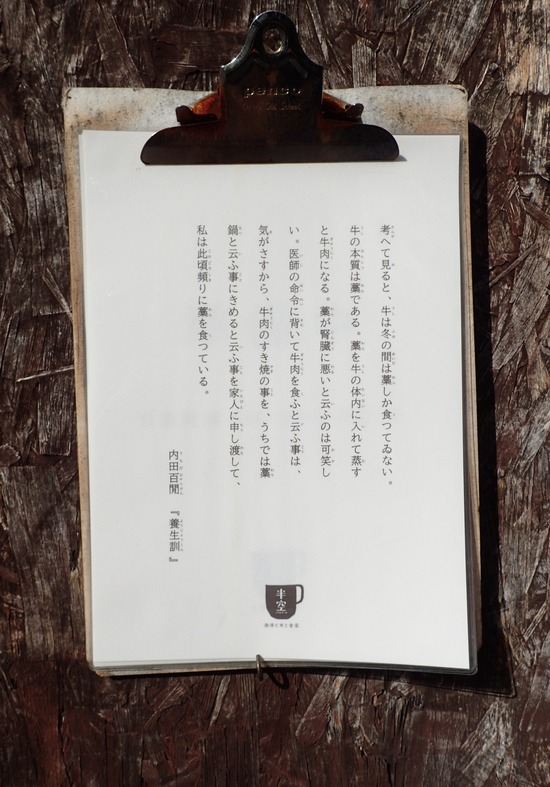 penco
考へて見ると、牛は冬の間は藁しか食つてゐない。
牛の本質は藁である。藁を牛の体内に入れて蒸す
と牛肉になる。藁が腎臓に悪いと云ふのは可笑し
い。医師の命令に背いて牛肉を食ふと云ふ事は、
気がさすから、牛肉のすき焼の事を、うちでは藁
鍋と云ふ事にきめると云ふ事を家人に申し渡して、
私は此頃頻りに藁を食つている。
内田百閒 『養生訓』
半空
珈琲と本と音楽